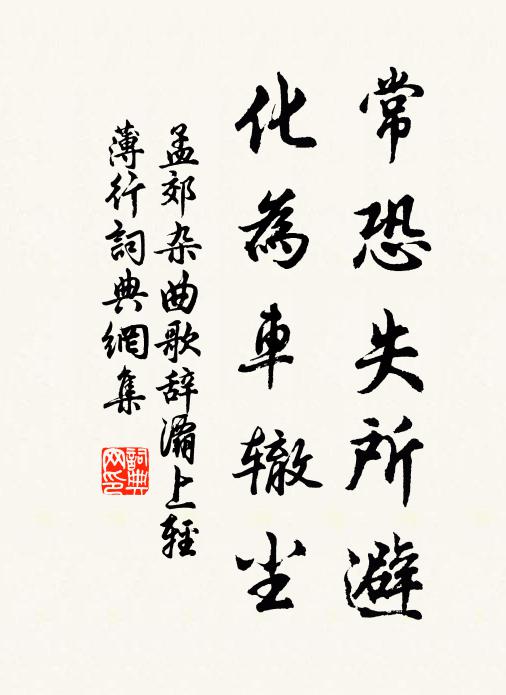 常恐失所避
化為車辙尘
孟郊杂曲歌辞灞上轻
薄行詞典網集
詞典
网印